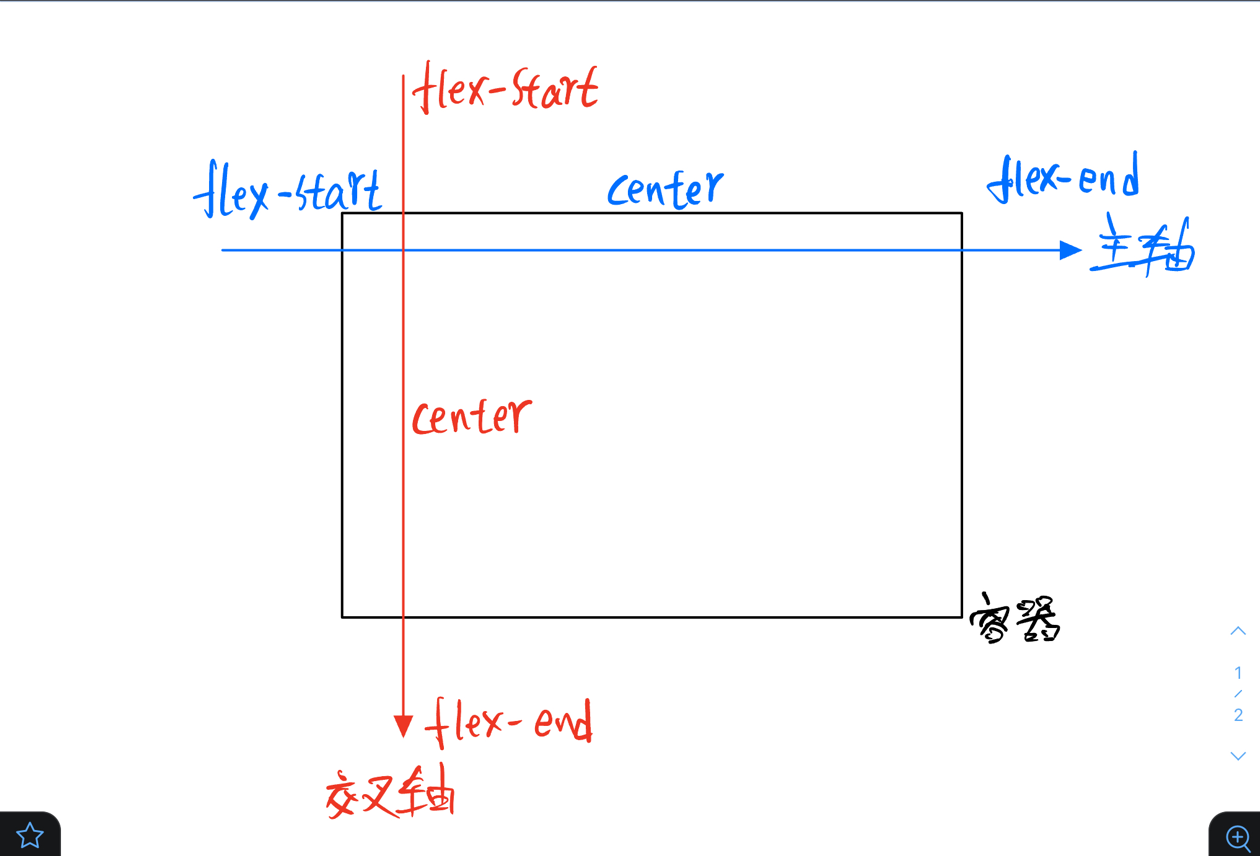 flex-start
flex-start center flex-end
主轴
center
容器
1
/
2
flex-end
交叉轴